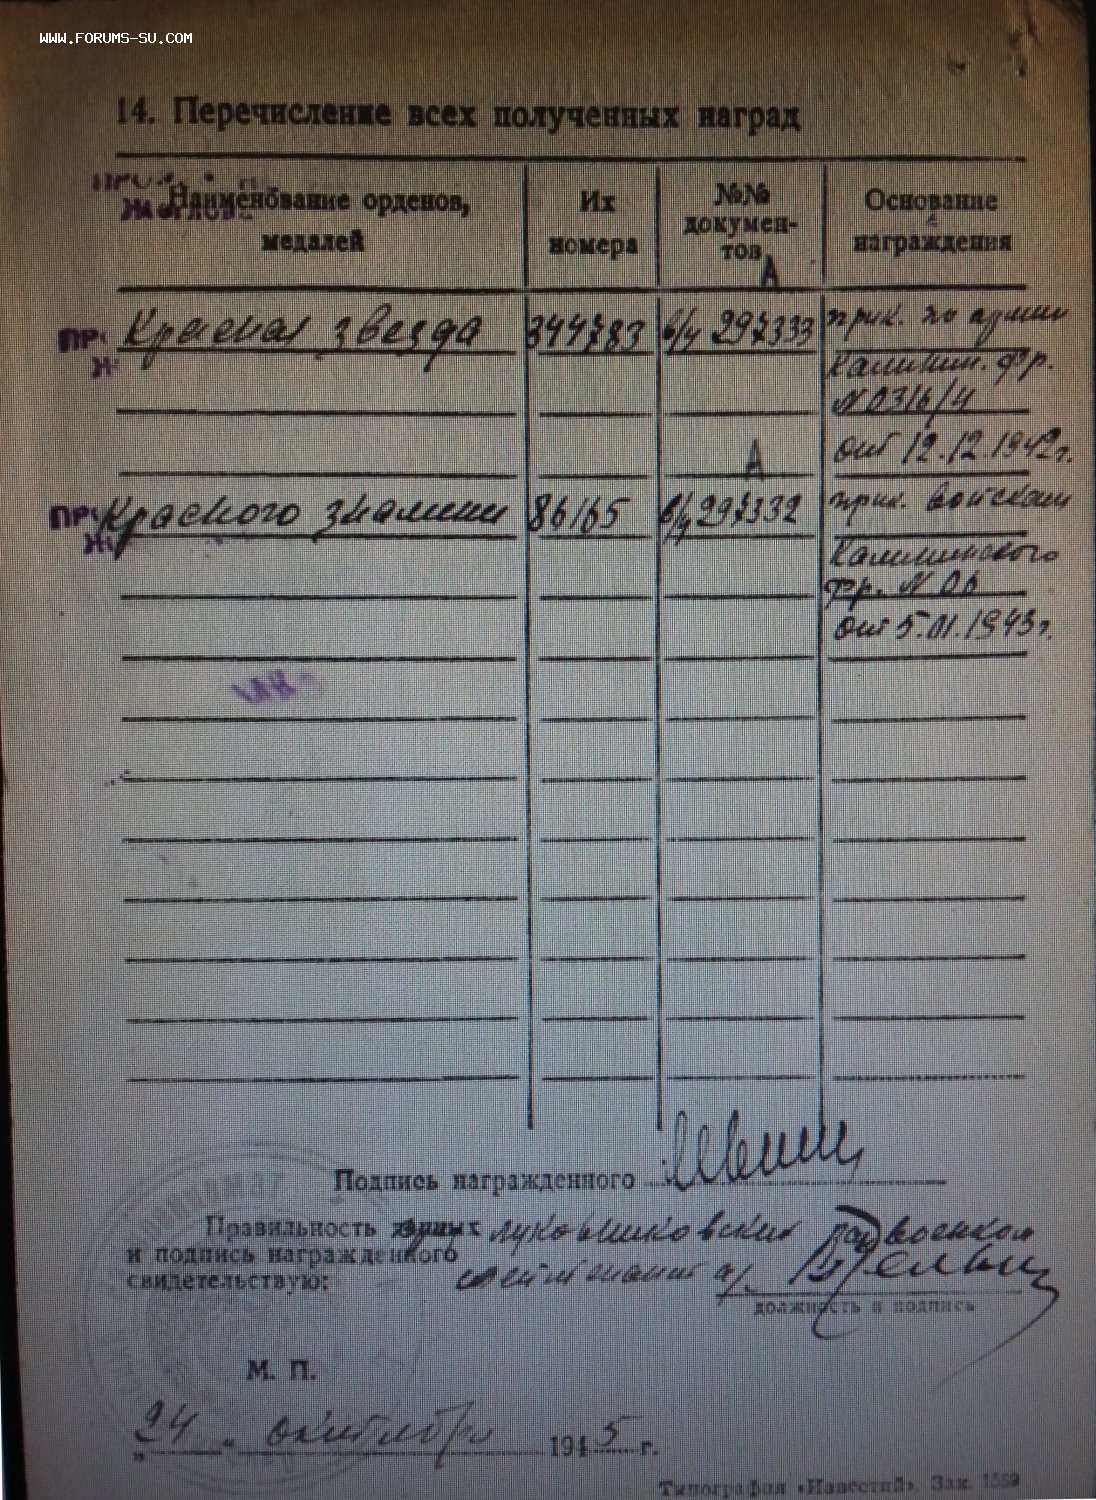 WWW.FORUMS-SU.COM
14. Перечисление всех полученных наград
Наименование орденов,
медалей
Их
номера
№№
докумен-
тов
Основание
награждения
А
Красная звезда 344783 297333 прик. по армии
Калинин. фр.
N 0316/4
от 12.12.1942г.
А
Красного знамени 86165 297332 прик. войскам
Калининского
фр. N 06
от 5.01.1943г.
Подпись награжденного
Правильность данных Лукошиковский райвоенком
и подпись награжденного
свидетельствую:
должность и подпись
М. П.
„24 " октября 1945 г.
Типография «Известий». Зак. 1559